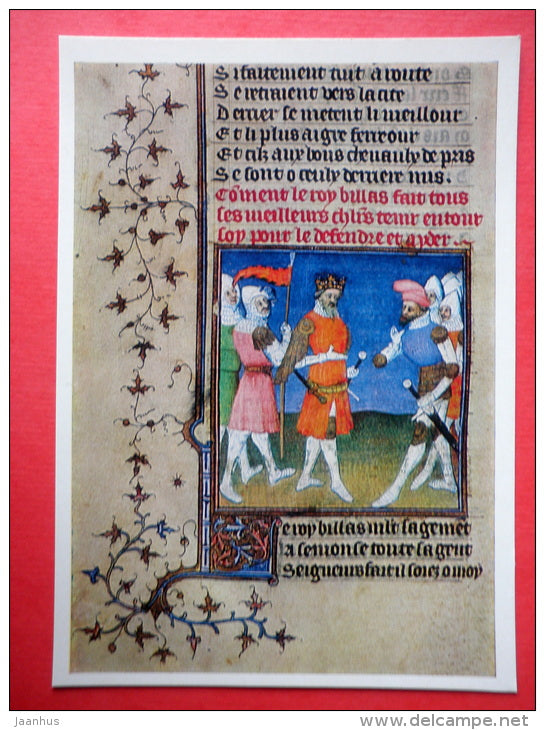 Si faitement tuit a route
Se retraient vers la cite
Derrier se metent li meillour
Et li plus aigre ferreour
Et cilz aux bons cheuaulx de pris
Se sont o ceulx derriere mis.
Coment le roy billas fait tous
ses meilleurs chlrs tenir entour
soy pour le defendre et ayder
Le roy billas a sa gent
la semonse toute sa gent
Seigneurs fait il soiez o moy
Jaanhus
www.delcampe.net